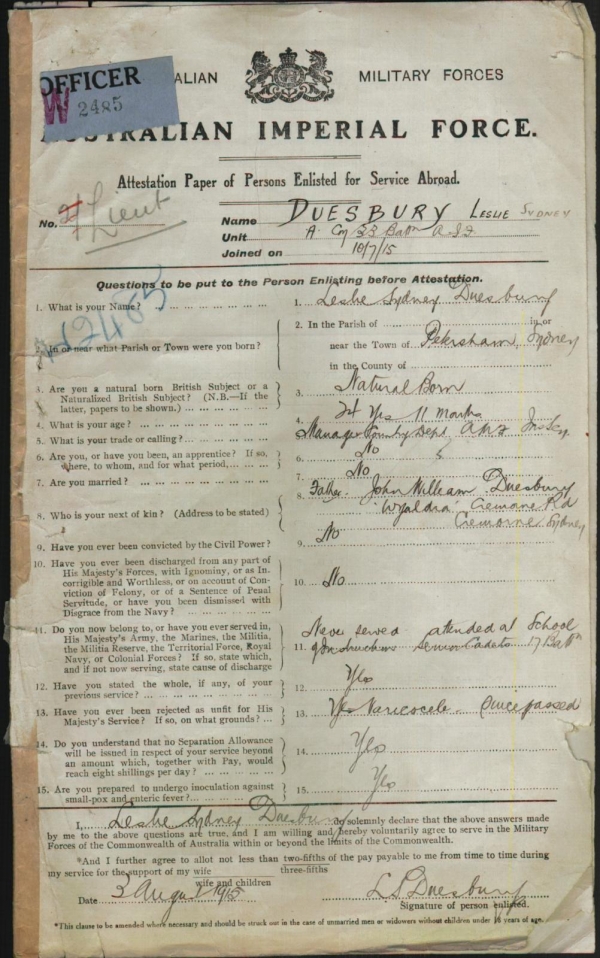 OFFICER
W 2485
ALIAN MILITARY FORCES
AUSTRALIAN IMPERIAL FORCE.
Attestation Paper of Persons Enlisted for Service Abroad.
No. Lieut
Name DUESBURY LESLIE SYDNEY
Unit A Coy 33 Battn A.I.F
Joined on 10/7/15
Questions to be put to the Person Enlisting before Attestation.
1. What is your Name? 1. Leslie Sydney Duesbury
W2485
2. In or near what Parish or Town were you born? 2. In the Parish of in or
near the Town of Petersham, Sydney
in the County of
3. Are you a natural born British Subject or a
Naturalized British Subject? (N.B.—If the
latter, papers to be shown.) 3. Natural Born
4. What is your age? 4. 24 Yrs 11 Months
5. What is your trade or calling? Manager Country Dept
6. Are you, or have you been, an apprentice? If so,
where, to whom, and for what period, 6. No
7. Are you married? 7. No
8. Who is your next of kin? (Address to be stated) 8. Father. John William Duesbury
Wyaldra Cremorne Rd
Cremorne Sydney
9. Have you ever been convicted by the Civil Power? 9. No
10. Have you ever been discharged from any part of
His Majesty's Forces, with Ignominy, or as In-
corrigible and Worthless, or on account of Con-
viction of Felony, or of a Sentence of Penal
Servitude, or have you been dismissed with
Disgrace from the Navy? 10. No
11. Do you now belong to, or have you ever served in,
His Majesty's Army, the Marines, the Militia,
the Militia Reserve, the Territorial Force, Royal
Navy, or Colonial Forces? If so, state which,
and if not now serving, state cause of discharge
Never served attended at School
11. of Instructions Senior Cadets. 17 Battn
12. Have you stated the whole, if any, of your
previous service? 12. Yes
13. Have you ever been rejected as unfit for His
Majesty's Service? If so, on what grounds? 13. Yes Varicocele. Since passed
14. Do you understand that no Separation Allowance
will be issued in respect of your service beyond
an amount which, together with Pay, would
reach eight shillings per day? 14. Yes
15. Are you prepared to undergo inoculation against
small-pox and enteric fever? 15. Yes
I, Leslie Sydney Duesbury do solemnly declare that the above answers made
by me to the above questions are true, and I am willing and hereby voluntarily agree to serve in the Military
Forces of the Commonwealth of Australia within or beyond the limits of the Commonwealth.
*And I further agree to allot not less than two-fifths of the pay payable to me from time to time during
three-fifths
my service for the support of my wife
wife and children
Date 2 August 1915 L S Duesbury
Signature of person enlisted.
*This clause to be amended where necessary and should be struck out in the case of unmarried men or widowers without children under 18 years of age.